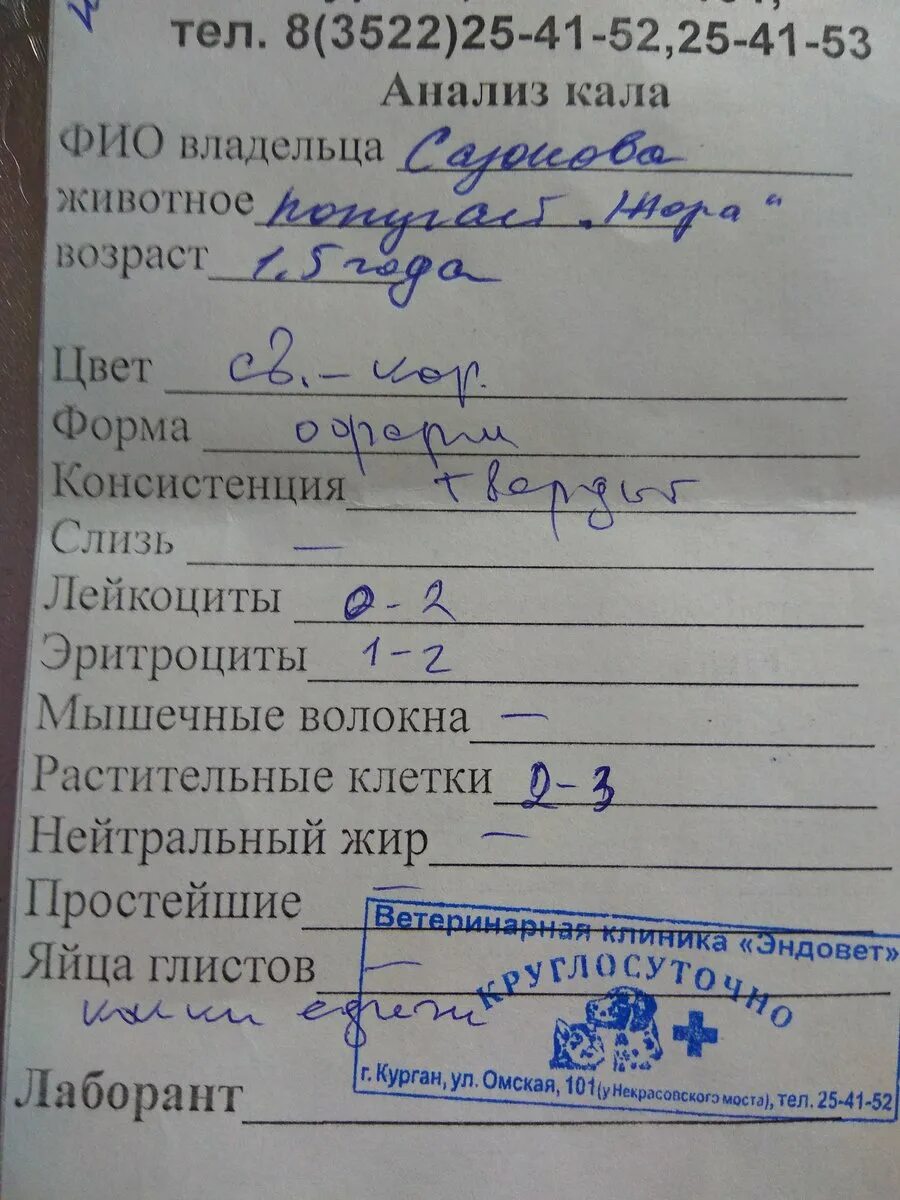 тел. 8(3522)25-41-52,25-41-53
Анализ кала
ФИО владельца Сазонова
животное попугай „Жора“
возраст 1.5 года
Цвет св.-кор.
Форма оформ
Консистенция твердый
Слизь —
Лейкоциты 0-2
Эритроциты 1-2
Мышечные волокна —
Растительные клетки 2-3
Нейтральный жир —
Простейшие —
Ветеринарная клиника «Эндовет»
Яйца глистов —
КРУГЛОСУТОЧНО
г. Курган, ул. Омская, 101 (у Некрасовского моста), тел. 25-41-52
Лаборант